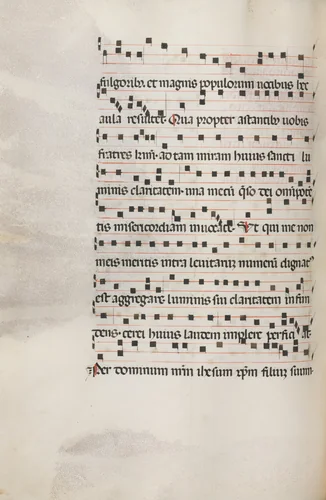 fulgoribus et magnis populorum uocibus hec
aula resultet. Qua propter astantibus uobis
fratres krmi. ad tam miram huius sancti lu
minis claritatem. una mecum qso dei omnipote
tis misericordiam inuocate. Vt qui me non
meis meritis intra leuitarum numerum dignat9
est aggregare luminis sui claritatem infun
dens. cerei huius laudem implere perficiat.
Per dominum nrm ihesum xpm filium suum.